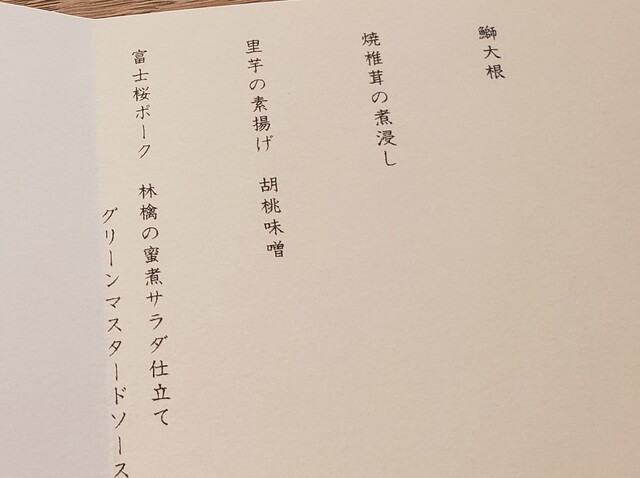 鰤大根
焼椎茸の煮浸し
里芋の素揚げ 胡桃味噌
富士桜ポーク 林檎の蜜煮サラダ仕立て
グリーンマスタードソース